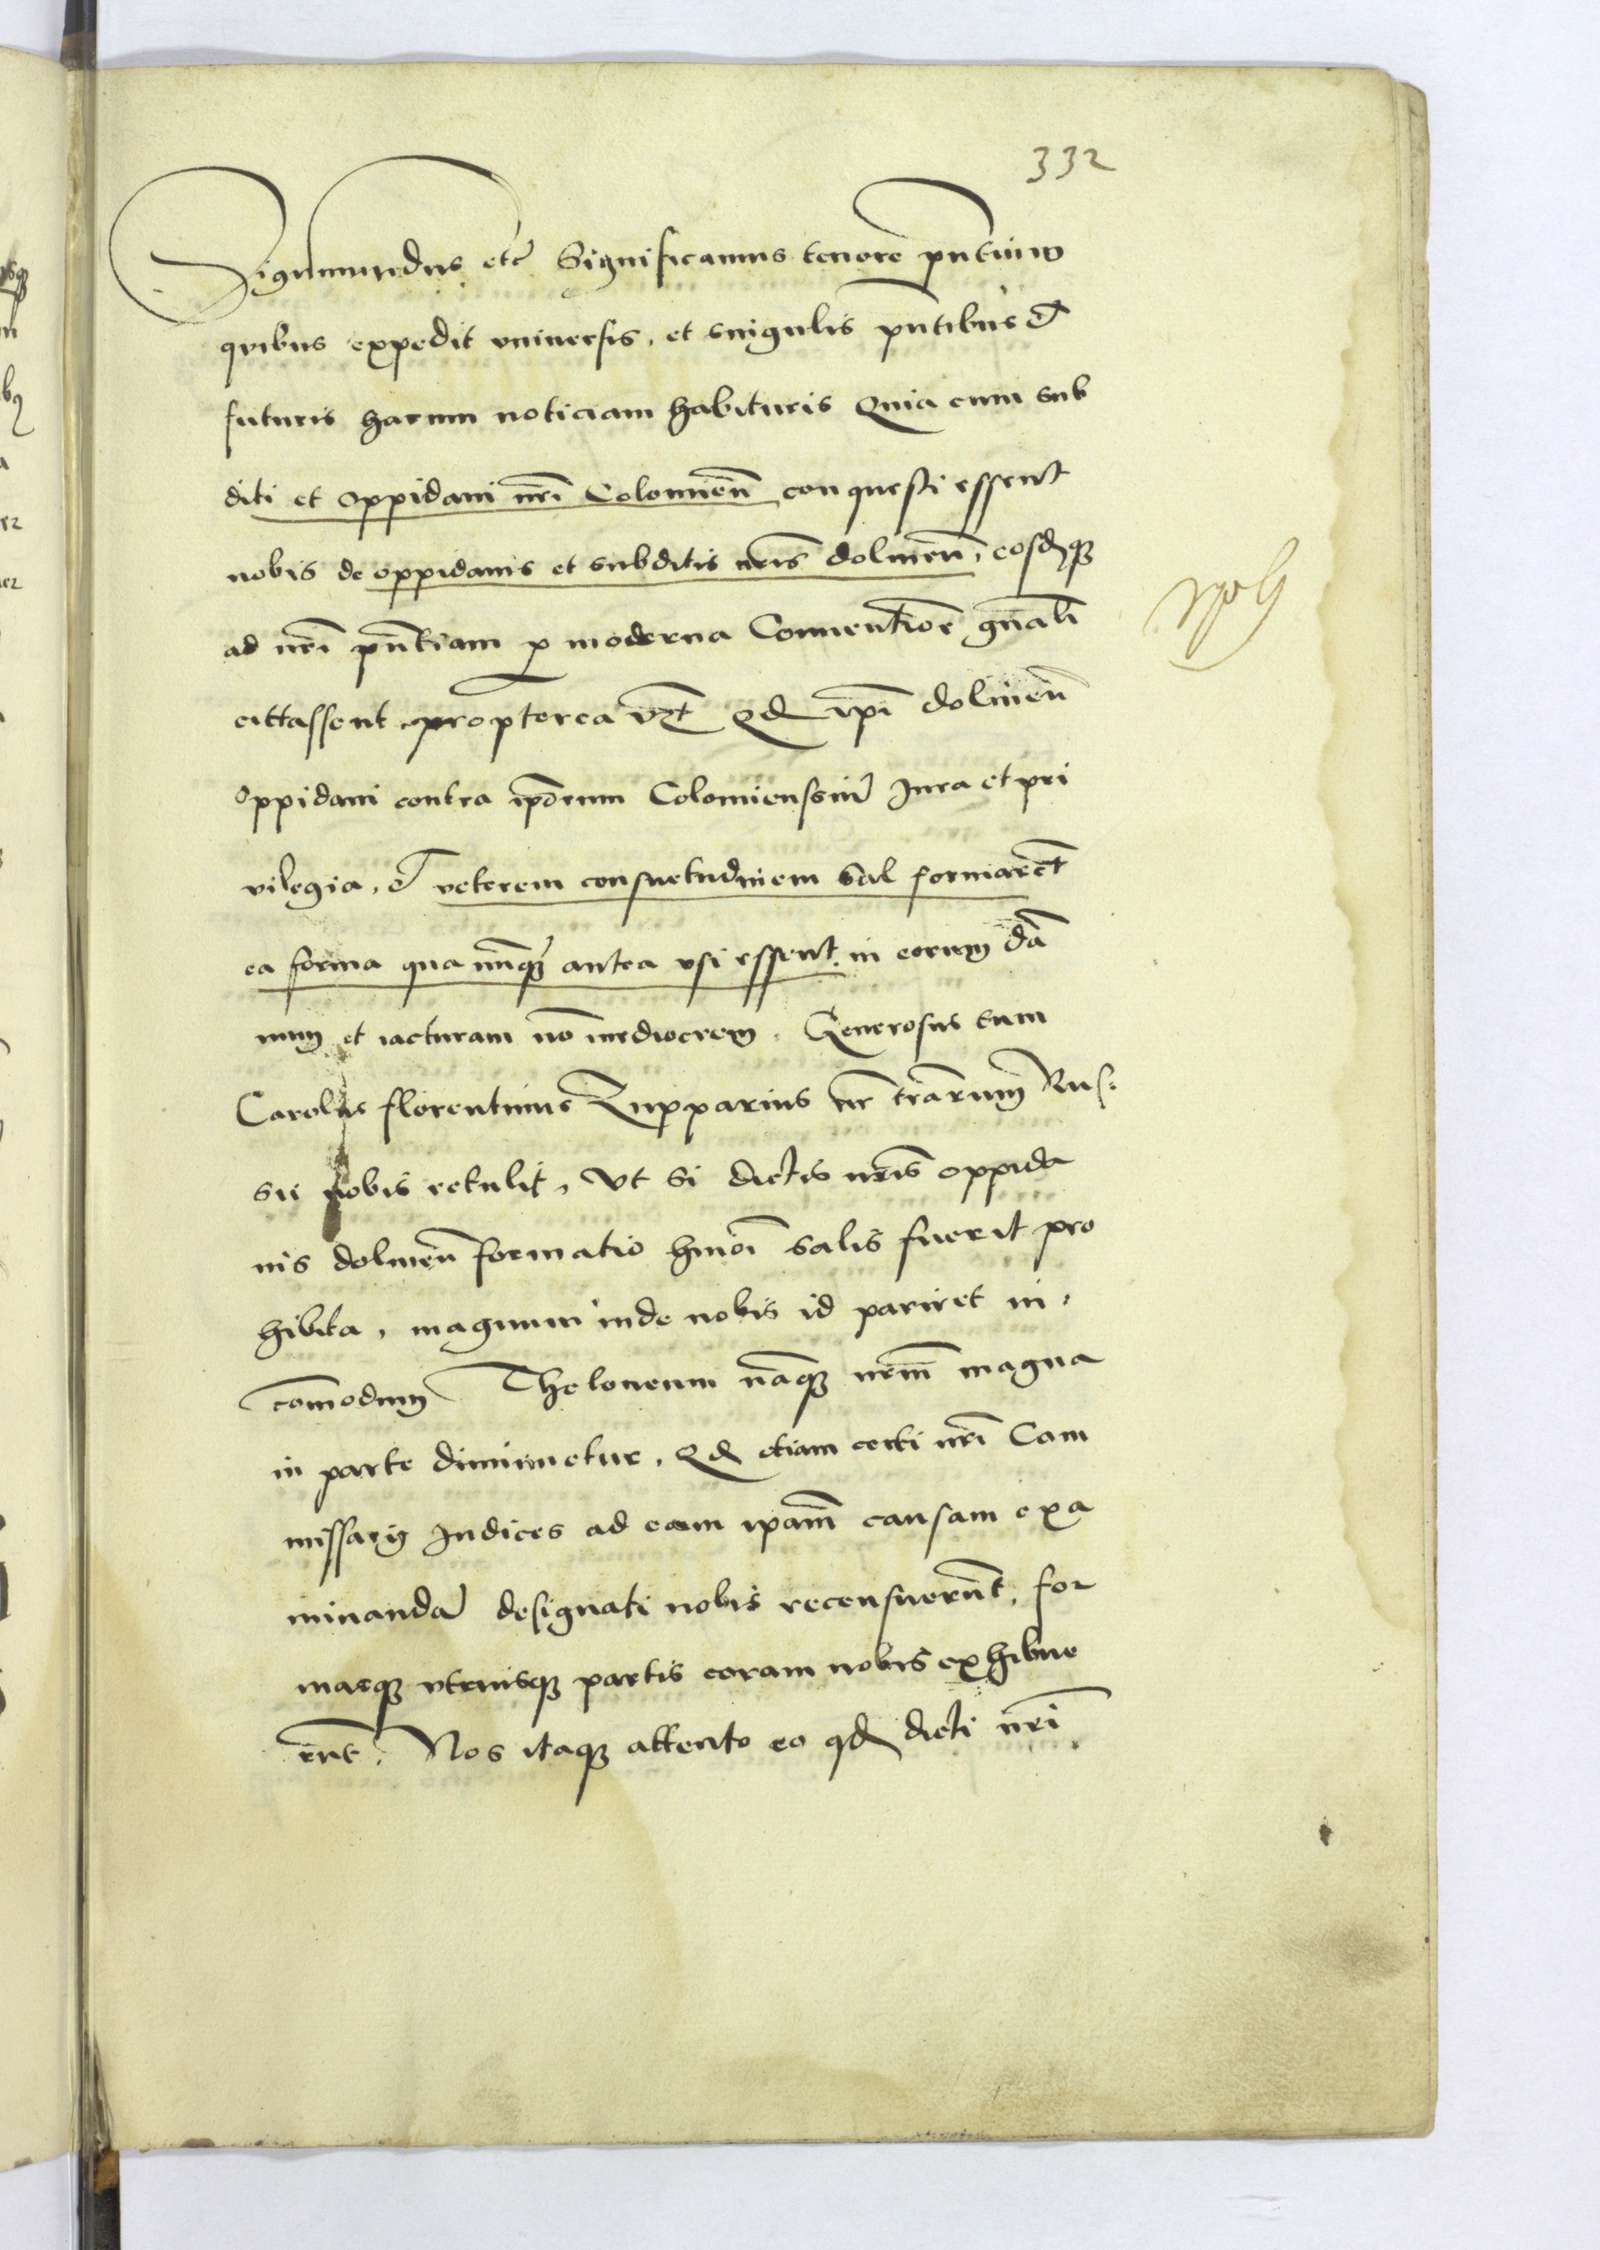 332
Sigismundus etc̃ Significamus tenore pñtium
quibus expedit vniuersis, et singulis pñtibus et
futuris harum noticiam habituris Quia cum sub
diti et oppidani nrĩ Colomieñ conquesti essent
nobis de oppidanis et subditis nrĩs dolineñ, eosdq̃
ad nrĩ pñtiam p moderna Conuentiõe gñali
cittassent propterea vꝫ qd ipĩ dolineñ
oppidani contra ipõrum Colomiensiũ Iura et pri
vilegia, et veterem consuetudinem Sal formarẽt
ea forma qua nũqꝫ antea vsi essent in eorum dã
num et iacturam nõ mediocrem. Generosus tum
Carolus florentinus Zupparius nr̃ terrarum Rus:
sie nobis retulit, Vt Si dictis nrĩs oppida
nis dolineñ formatio hmõi salis fuerit pro
hibita, magnum inde nobis id pariret in:
cõmodum Theloneum nãqꝫ nrm̃ magna
in parte diminuetur, Qd etiam certi nrĩ Com
missarij Iudices ad eam ipam̃ causam exa
minandã designati nobis recensuerũt, for
masqꝫ vtriusqꝫ partis coram nobis exhibue
rũt. Nos itaqꝫ attento eo qd dicti nrĩ